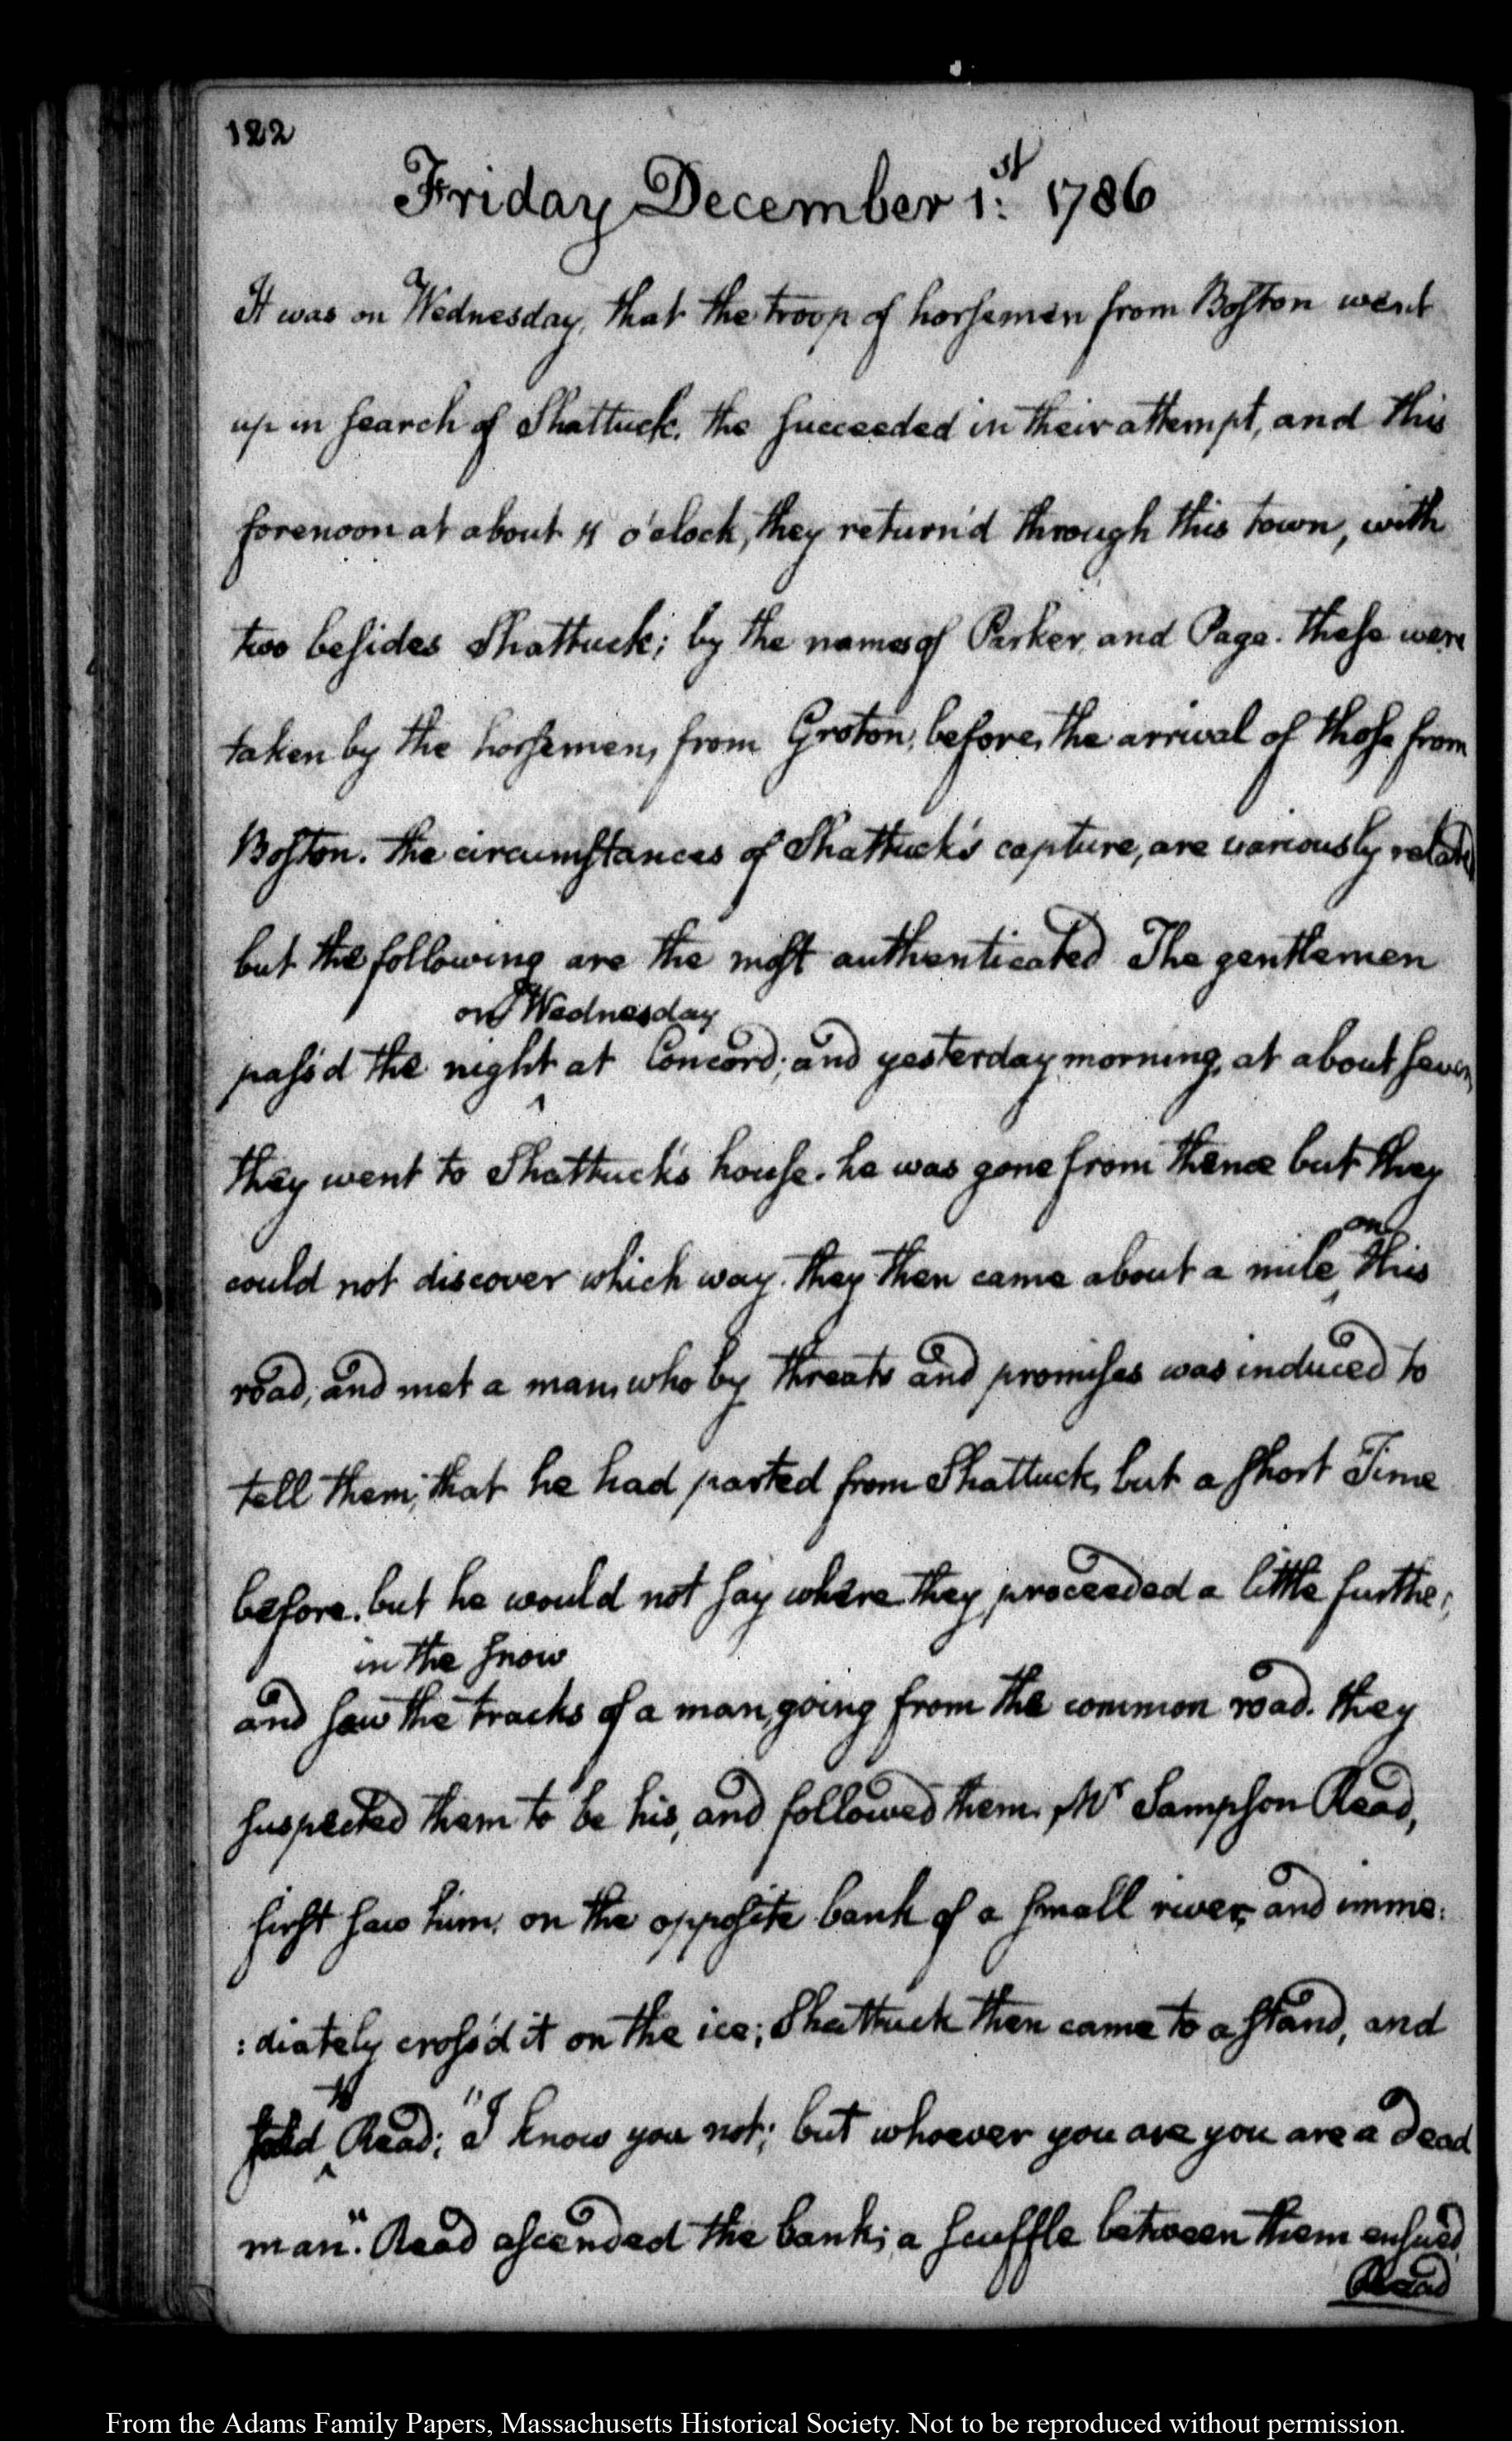 122
Friday December 1:st 1786
It was on Wednesday, that the troop of horsemen from Boston went
up in search of Shattuck. the succeeded in their attempt, and this
forenoon at about 11 o'clock, they return'd through this town, with
two besides Shattuck; by the names of Parker, and Page. these were
taken by the horsemen, from Groton, before, the arrival of those from
Boston. the circumstances of Shattuck's capture, are variously related
but the following are the most authenticated The gentlemen
on Wednesday
pass'd the night at Concord; and yesterday morning, at about seven
they went to Shattuck's house. he was gone from thence but they
on
could not discover which way. they then came about a mile this
road, and met a man, who by threats and promises was induced to
tell them, that he had parted from Shattuck, but a short Time
before. but he would not say where they proceeded a little further,
in the snow
and saw the tracks of a man, going from the common road. they
suspected them to be his, and followed them. Mr Sampson Read,
first saw him, on the opposite bank of a small river, and imme:
:diately cross'd it on the ice; Shattuck then came to a stand, and
to
said Read; "I know you not; but whoever you are you are a dead
man". Read ascended the bank; a scuffle between them ensued,
Read
From the Adams Family Papers, Massachusetts Historical Society. Not to be reproduced without permission.